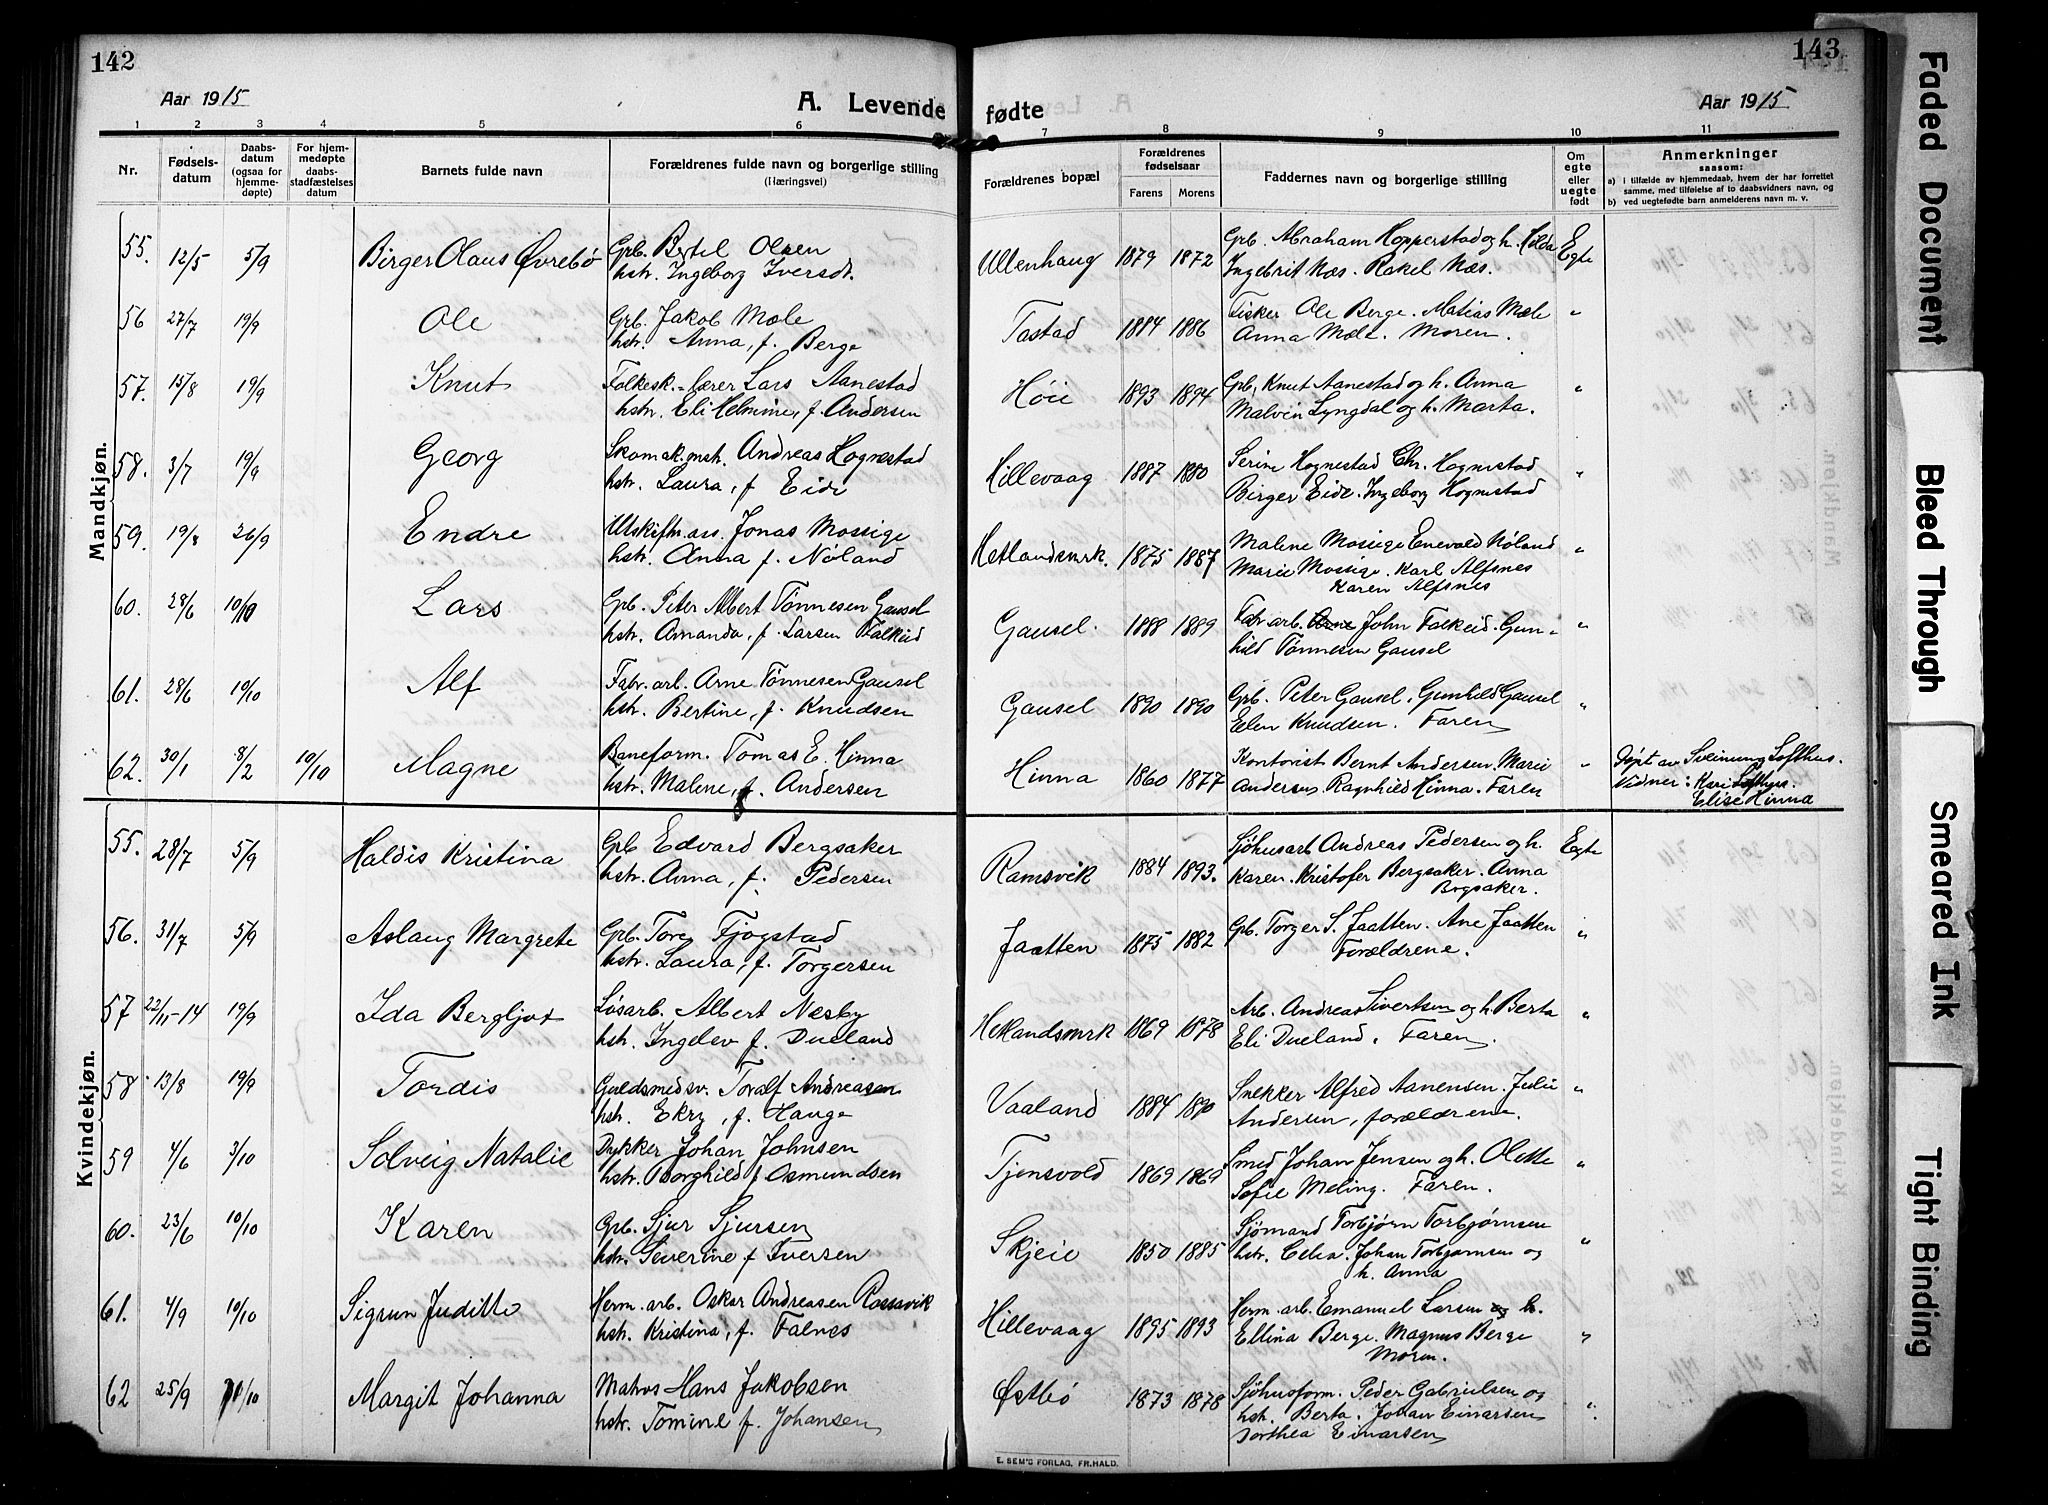 142
Aar 1915
A. Levende
1 2 3 4 5 6
Nr.
Fødsels-
datum
Daabs-
datum
(ogsaa for
hjemme-
døpte)
For hjem-
medøpte
daabs-
stadfæstelses
datum
Barnets fulde navn
Forældrenes fulde navn og borgerlige stilling
(Næringsvei)
Mandkjøn.
55. 12/5 5/9 Birger Olaus Øvrebø Grb. Bertil Olsen
hstr. Ingeborg Iversdt.
56 27/7 19/9 Ole Grb. Jakob Mæle
hstr. Anna, f. Berge
57. 15/8 19/9 Knut Folkesk.-lærer Lars Aanestad
hstr. Eli Helmine, f. Andersen
58. 3/7 19/9 Georg Skomak.mstr. Andreas Hognestad
hstr. Laura, f. Eide
59. 19/8 26/9 Endre Utskiftn.ass. Jonas Mossige
hstr. Anna f. Nøland
60. 28/6 10/10 Lars Grb. Peter Albert Tønnesen Gausel
hstr. Amanda, f. Larsen Falkeid
61. 28/6 10/10 Alf Fabr. arb. Arne Tønnesen Gausel
hstr. Bertine, f. Knudsen
62. 30/1 8/2 10/10 Magne Baneform. Tomas E. Hinna
hstr. Malene, f. Andersen
Kvindekjøn.
55. 28/7 5/9 Haldis Kristina Grb Edvard Bergsaker
hstr. Anna, f. Pedersen
56. 31/7 5/9 Aslaug Margrete Grb. Tore Fjogstad
hstr. Laura, f. Torgersen
57 22/11-14 19/9 Ida Bergljot Løsarb. Albert Næsby
hstr. Ingelev f. Dueland
58 13/8 19/9 Tordis Guldsmedsv. Toralf Andreasen
hstr. Ekry, f. Hauge
59 4/6 3/10 Solveig Natalie Dykker Johan Johnsen
hstr. Borghild f. Osmundsen
60. 23/6 10/10 Karen Grb. Sjur Sjursen
hstr. Severine f Iversen
61. 4/9 10/10 Sigrun Juditte Herm. arb. Oskar Andreasen Rossavik
hstr. Kristina, f. Falnes
62 25/9 /10 Margit Johanna Matros Hans Jakobsen
hstr. Tomine f. Johansen
143
fødte
Aar 1915
7 8 9 10 11
Forældrenes bopæl
Forældrenes
fødselsaar
Farens Morens
Faddernes navn og borgerlige stilling
Om
egte
eller
uegte
født
Anmerkninger
saasom:
a) i tilfælde av hjemmedaab, hvem der har forrettet
samme, med tilføielse af to daabsvidners navn, og
b) ved uegtefødte barn anmelderens navn m. v.
Ullenhaug 1879 1872 Grb. Abraham Hopperstad og h. Hilda Egte
Ingebrit Næs. Rakel Næs.
Tastad 1884 1886 Fisker Ole Berge. Matias Mæle "
Anna Mæle. Moren.
Høie 1893 1894 Grb. Knut Aanestad og h. Anna "
Malvin Lyngdal og h. Marta.
Hillevaag 1887 1880 Serine Hognestad Chr. Hognestad "
Birger Eide. Ingeborg Hognestad
Hetlandsmrk. 1875 1887 Malene Mossige Enevald Nøland "
Marie Mossige. Karl Alfsnes
Karen Alfsnes
Gausel. 1888 1889 Fabr. arb. Arne John Falkeid. Gun- "
hild Tønnesen Gausel
Gausel 1890 1890 Grb. Peter Gausel. Gunhild Gausel "
Elen Knudsen. Faren
Hinna 1860 1877 Kontorist Bernt Andersen. Marie " Døpt av Sveinung Lofthus.
Andersen Ragnhild Hinna. Faren Vidner: Kari Lofthus.
Elise Hinna
Ramsvik 1884 1893. Sjøhusarb Andreas Pedersen og h. Egte
Karen. Kristofer Bergsaker. Anna
Bergsaker.
Jaatten 1875 1882 Grb. Torger S. Jaatten. Ane Jaatten "
Forældrene.
Hetlandsmrk 1869 1878 Arb. Andreas Sivertsen og h. Berta "
Eli Dueland. Faren.
Vaaland 1884 1890 Snekker Alfred Aanensen. Julie "
Andersen, forældrene.
Tjensvold 1869 1869 Smed Johan Jensen og h. Olette "
Sofie Meling. Faren.
Skjeie 1850 1885 Sjømand Torbjørn Torbjørnsen "
hstr. Celia. Johan Torbjørnsen og
h. Anna
Hillevaag 1895 1893 Herm. arb. Emanuel Larsen og h.
Ellina Berge. Magnus Berge "
Moren.
Østbø 1873 1878 Sjøhusform. Peder Gabrielsen og "
hstr. Berta. Johan Einarsen
Dorthea Einarsen
E. SEM'S FORLAG, FR.HALD.
Faded Document
Bleed Through
Smeared Ink
Tight Binding